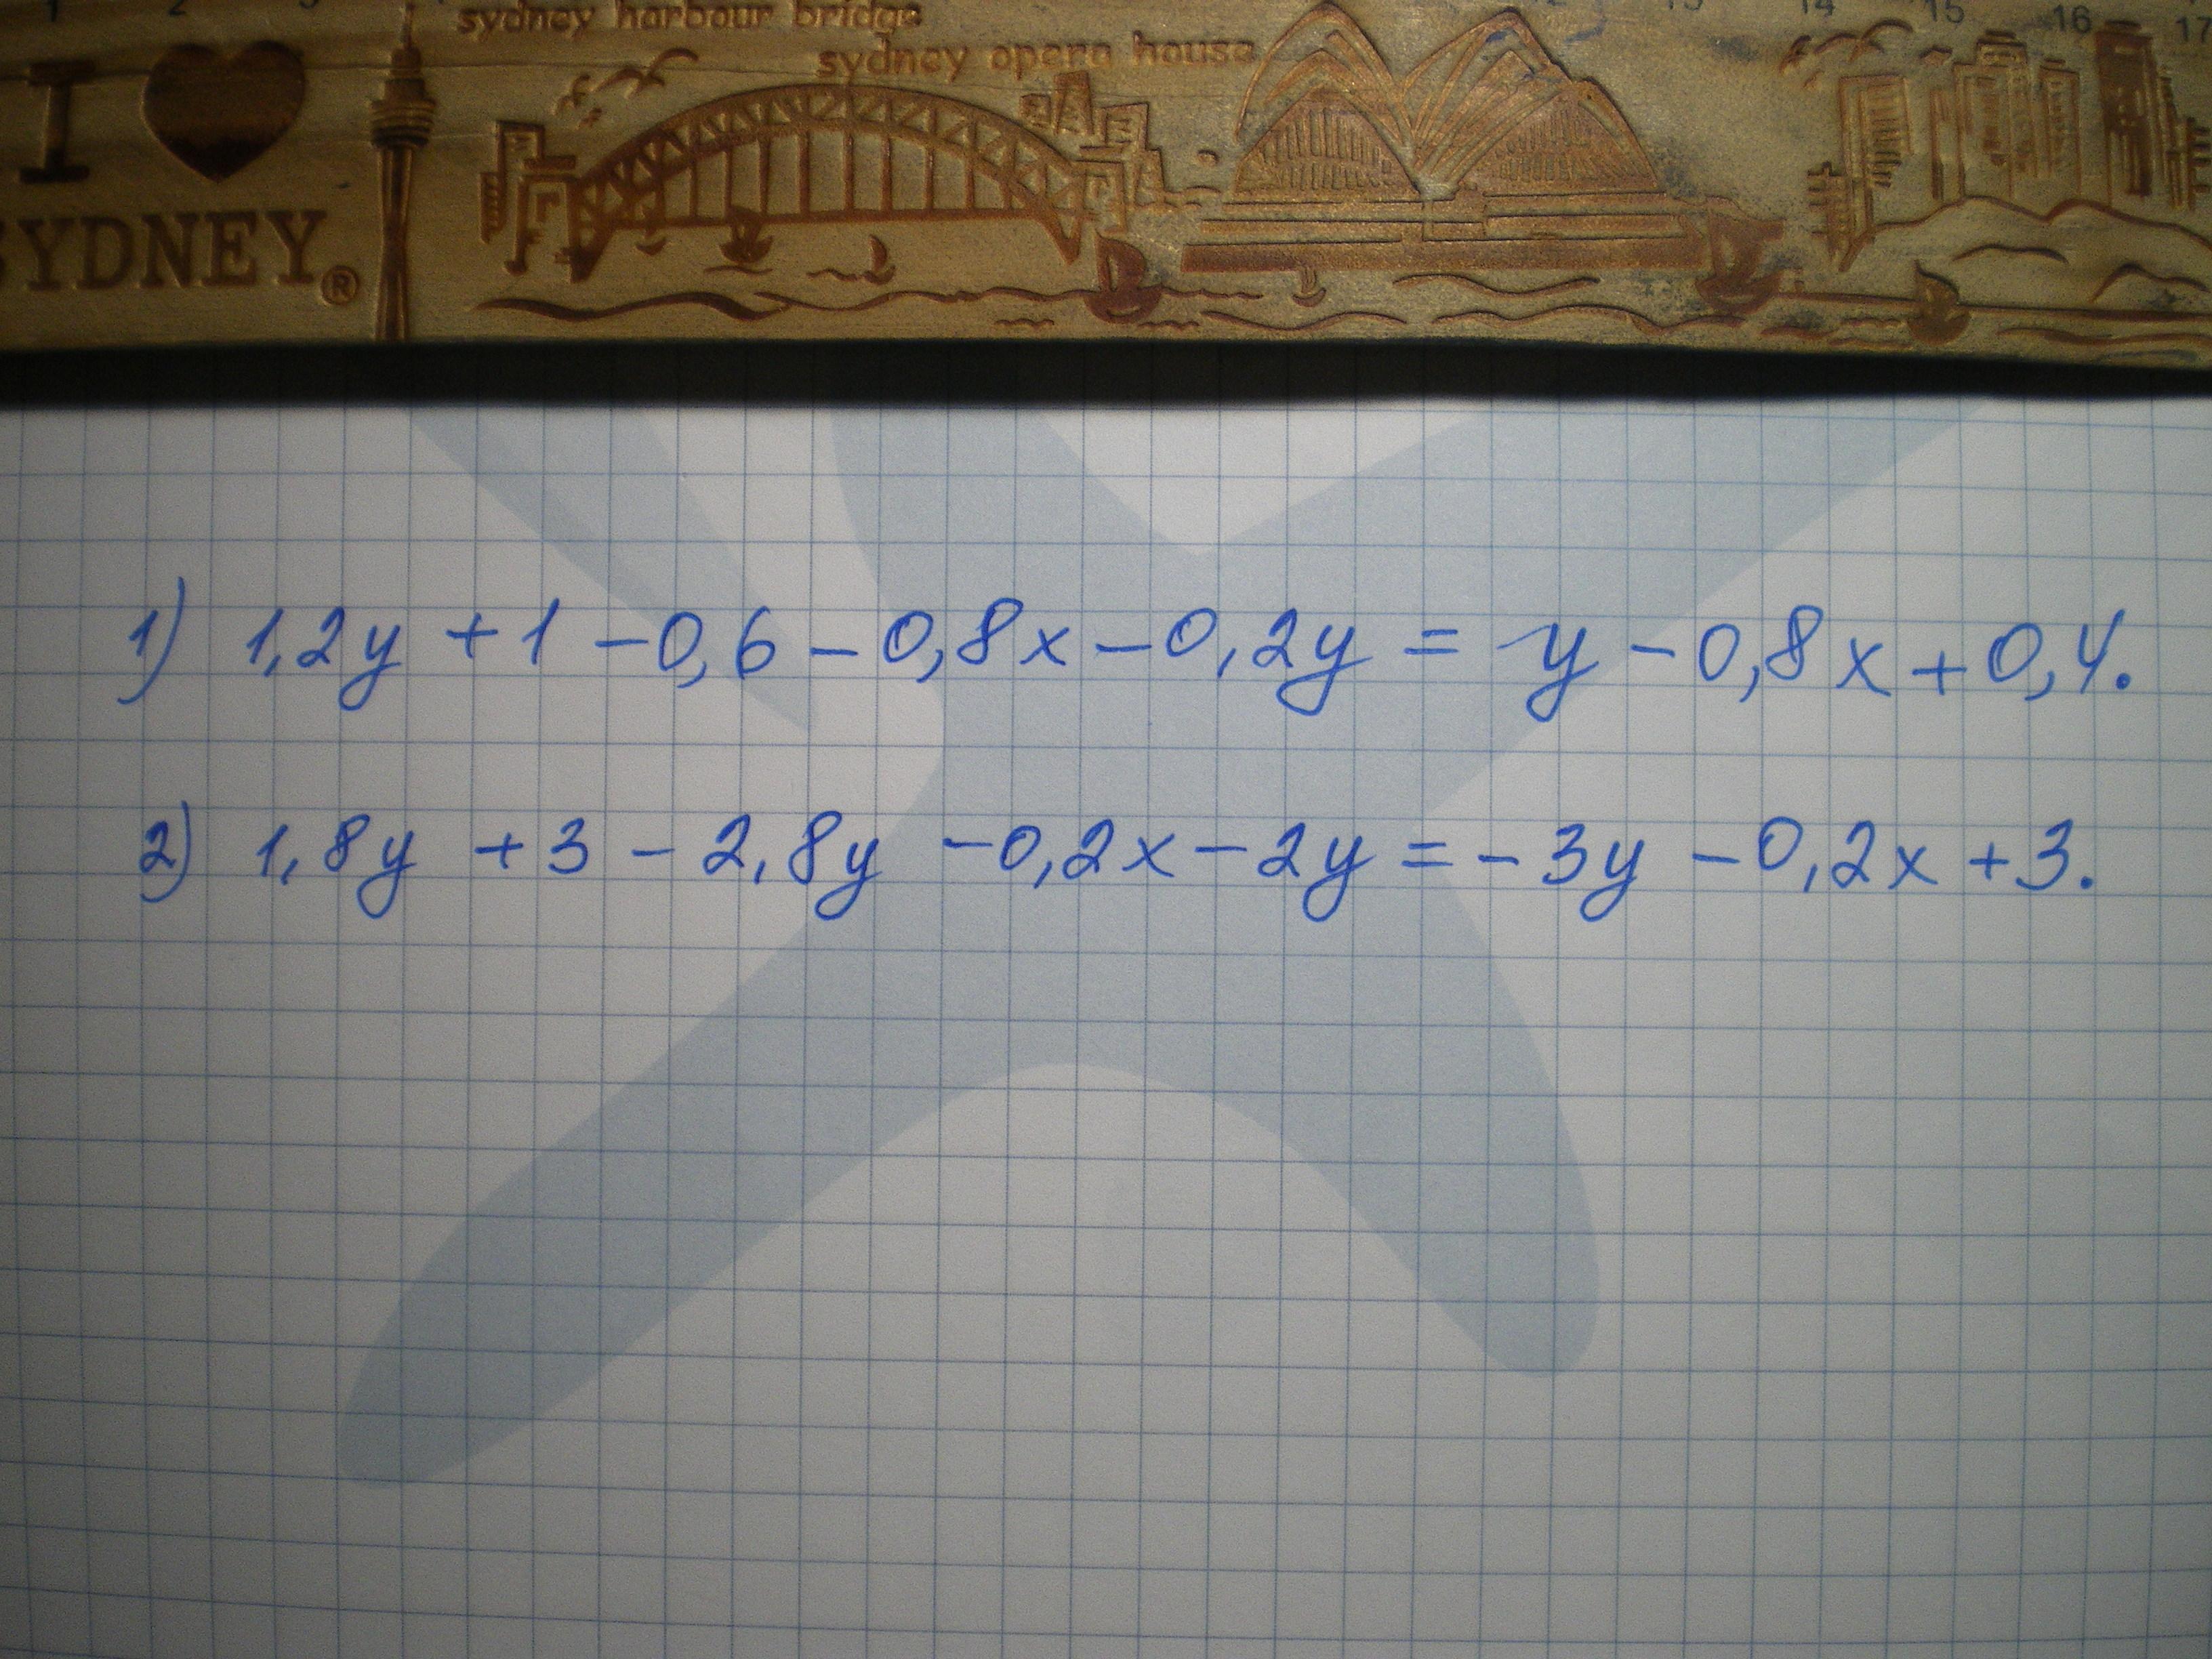 1 2 13 14 15 16 17
sydney harbour bridge
sydney opera house
I
SYDNEY®
1) 1,2y + 1 - 0,6 - 0,8x - 0,2y = y - 0,8x + 0,4.
2) 1,8y + 3 - 2,8y - 0,2x - 2y = - 3y - 0,2x + 3.